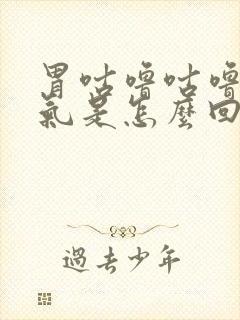 胃咕嚕咕嚕
氣是怎麼回
過去少年